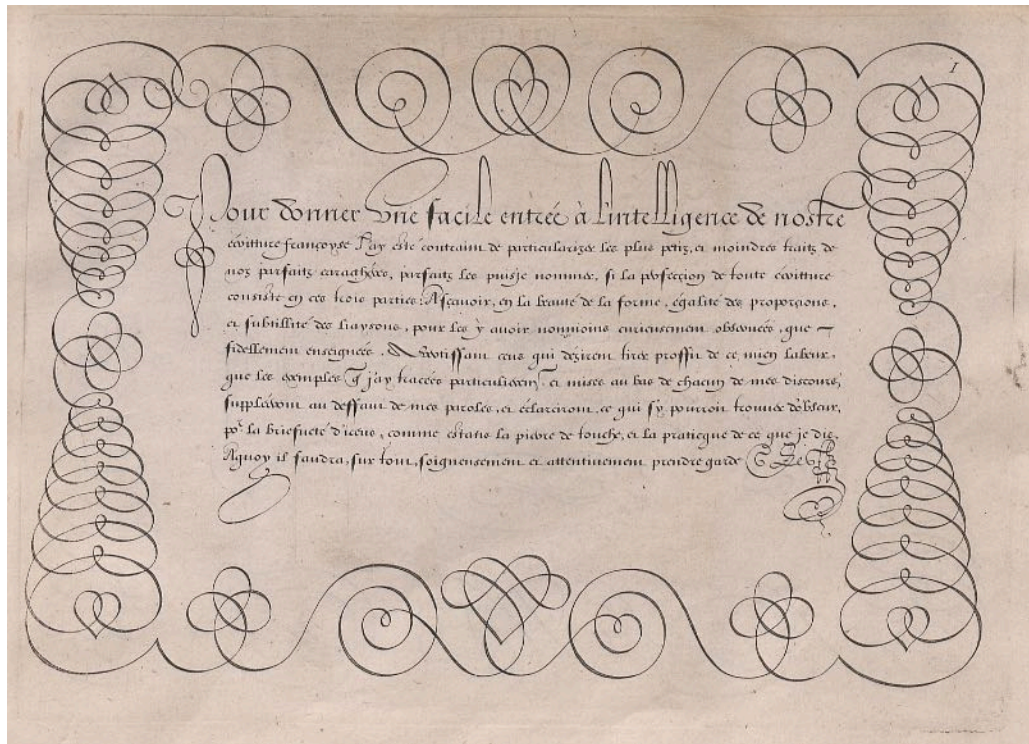 1
Pour donner une facile entrée à l'intelligence de nostre
écritture françoyse J'ay esté contraint de particularizer les plus petiz, et moindres traitz de
noz parfaitz caracthères, parfaitz les puisje nommer, si la perfecçion de toute écritture
consiste en ces trois parties: Asçavoir, en la beauté de la forme, égalité des proporçions,
et subtillité des liaysons, pour les y avoir nonmoins curieusement observées, que
fidellement enseignées. Avertissant ceus qui dezirent tirer proffit de ce, mien labeur,
que les exemples q̃ j'ay tracées particulierem̃t et mises au bas de chacun de mes discours,
supplééront au deffaut de mes paroles, et éclarciront, ce qui s'y pourroit trouver d'obscur,
po.r la briefueté d'iceus, comme estans la pierre de touche, et la praticque de ce que je dis,
Aquoy il faudra, sur tout, soigneusement et attentivement prendre garde